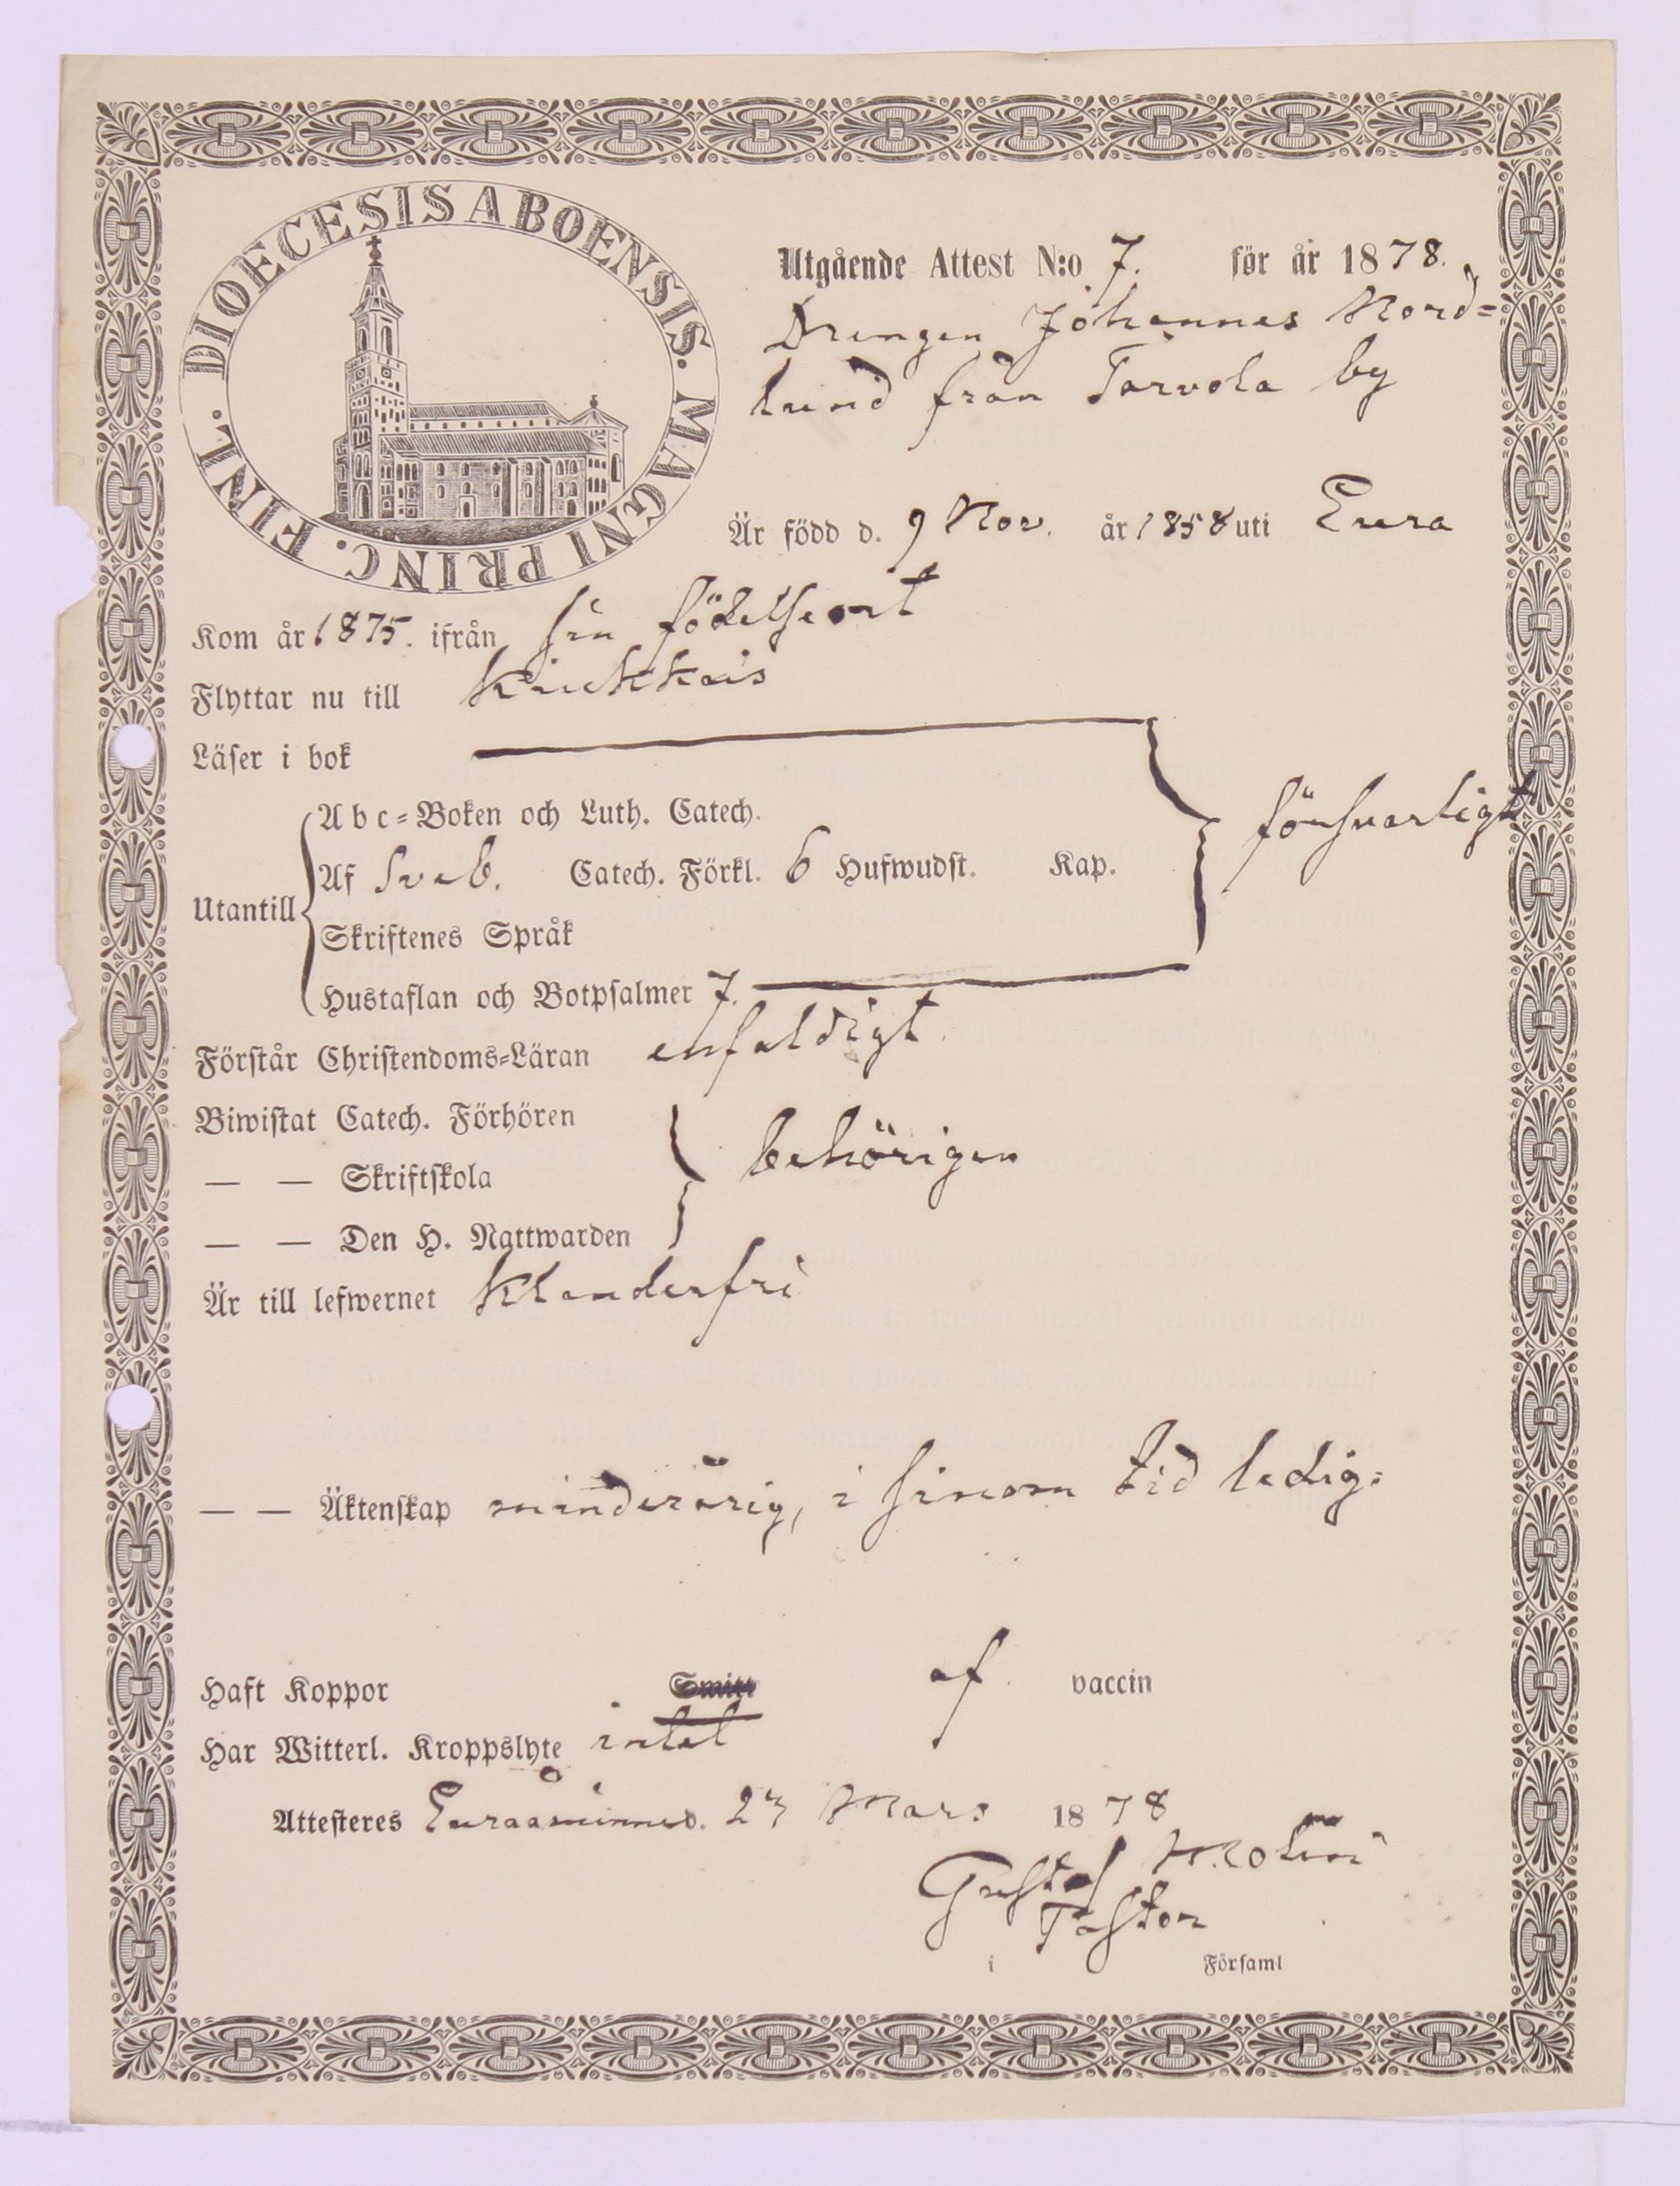 DIOECESIS ABOENSIS. MAGNI PRINC. FINL.
Utgående Attest N:o 7. för år 1878.
Drengen Johannes Nord=
lund från Tarvola by
Är född d. 9 Nov. år 1858 uti Eura
Kom år 1875. ifrån sin födelseort
Flyttar nu till Kiukkais
Läser i bok
försvarligt
Abc=Boken och Luth. Catech.
Af Sveb. Catech. Förkl. 6 Hufwudst. Kap.
Utantill
Skriftenes Språk
Hustaflan och Botpsalmer 7.
Förstår Christendoms=Läran enfaldigt.
Biwistat Catech. Förhören
— — Skriftskola behörigen
— — Den H. Nattwarden
Är till lefwernet Klanderfri
— — Äktenskap minderårig, i sinom tid ledig.
Haft Koppor Smitt af vaccin
Har Witterl. Kroppslyte intet
Attesteres Euraåminne d. 23 Mars 1878
Gustaf
Pastor
i Församl